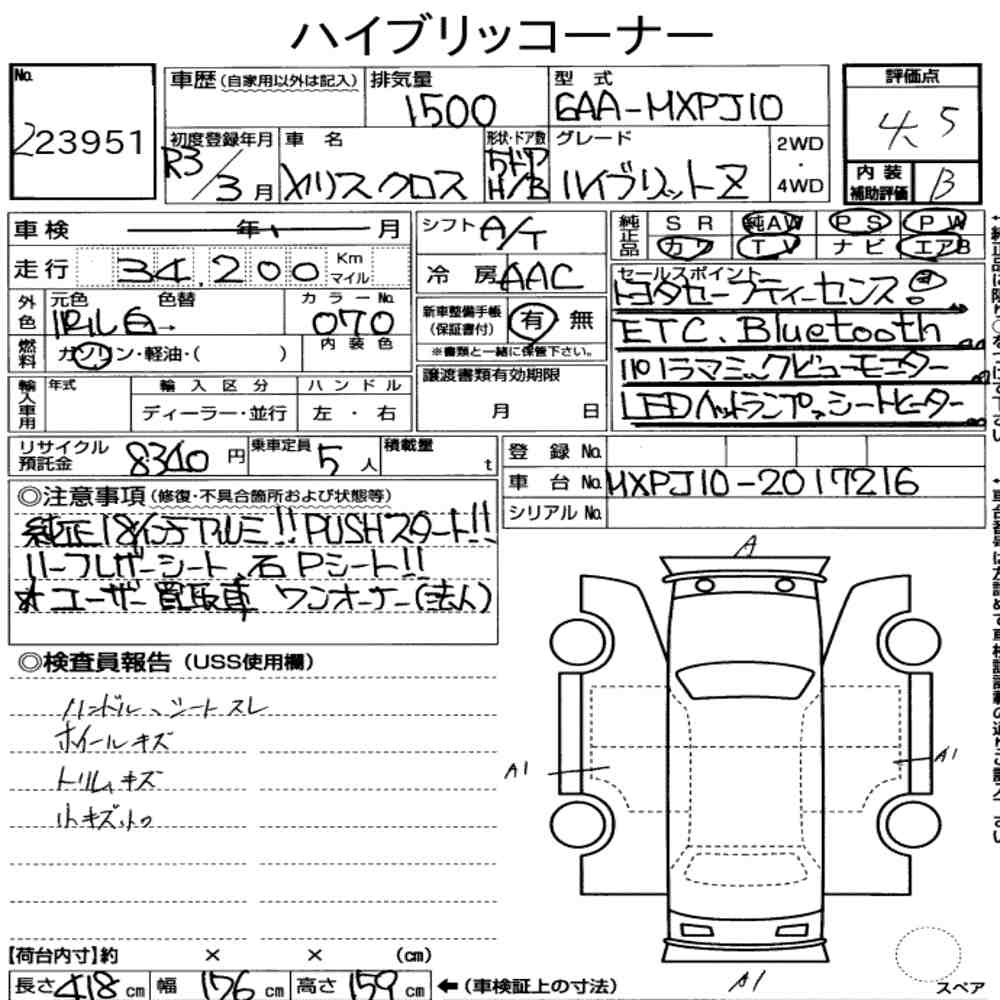 ハイブリッコーナー
No. 223951
車歴 (自家用以外は記入)
排気量 1500
型式 6AA-MXPJ10
評価点 4.5
内装補助評価 B
初度登録年月 R3/3月
車名 ヤリスクロス
形状・ドア数 5ドア H/B
グレード ハイブリットZ
2WD・4WD
車検 年 月
走行 34,200 Km マイル
シフト A/T
冷房 AAC
純正品 SR 純AW PS PW
カワ TV ナビ エアB
セールスポイント
トヨタセーフティーセンス!
ETC. Bluetooth
パノラマミックビューモニター
LEDヘットランプ シートヒーター
外色 元色 色替 カラーNo. 070
白
内装色
燃料 ガソリン・軽油・( )
新車整備手帳(保証書付) 有 無
※書類と一緒に保管下さい。
譲渡書類有効期限
月 日
輸入車用 年式 輸入区分 ハンドル
ディーラー・並行 左・右
リサイクル預託金 8340円
乗車定員 5人
積載量 t
登録 No.
車台 No. MXPJ10-2017216
シリアル No.
◎注意事項 (修復・不具合箇所および状態等)
純正18インチアルミ!! PUSHスタート!!
ハーフレザーシート、右Pシート!!
オユーザー買取車 ワンオーナー(法人)
◎検査員報告 (USS使用欄)
ハンドル、シートスレ
ホイールキズ
トリムキズ
小キズ小凹
A
A1
A1
A1
スペア
【荷台内寸】約 × × (cm)
長さ 418 cm 幅 176 cm 高さ 159 cm ←(車検証上の寸法)